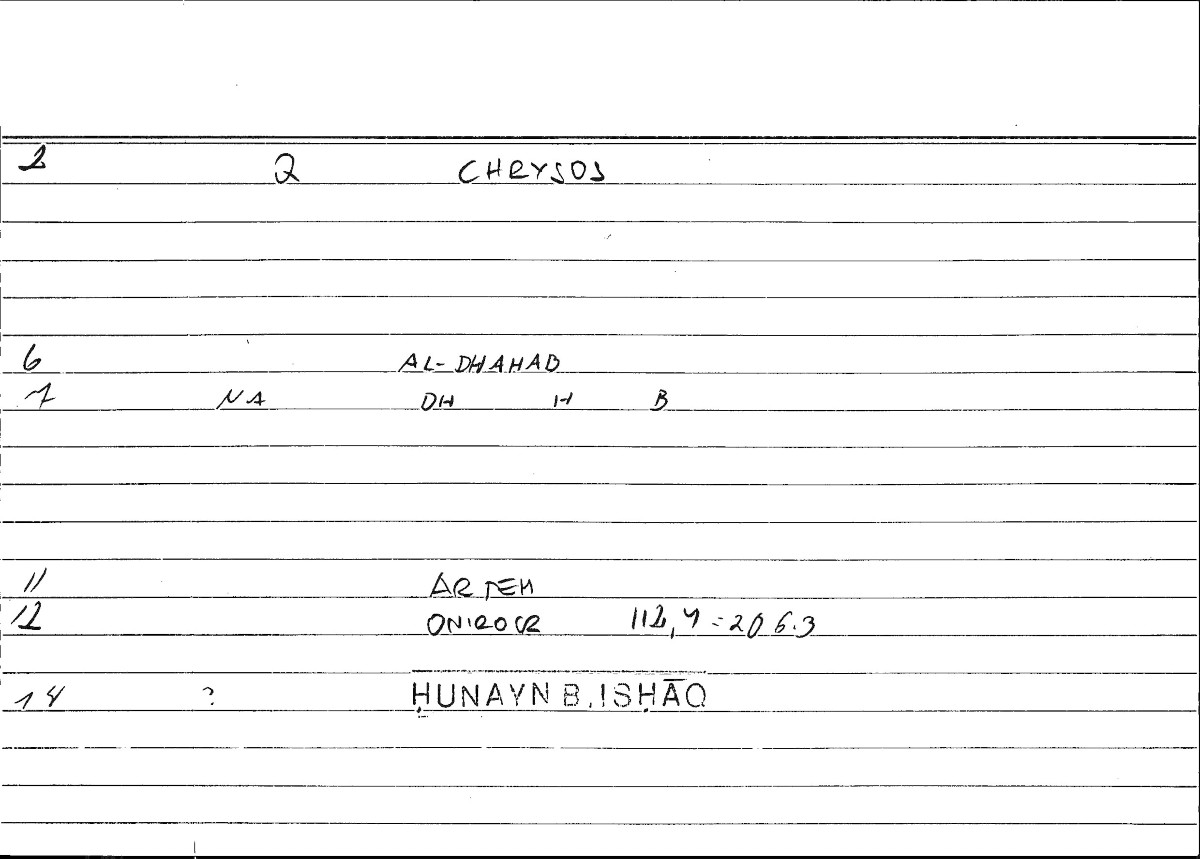 2 Q CHRYSOS
6 AL-DHAHAB
7 NA DH H B
11 ARTEM
12 ONIROCR 112,4=206.3
14 ? ḤUNAYN B. ISḤĀQ